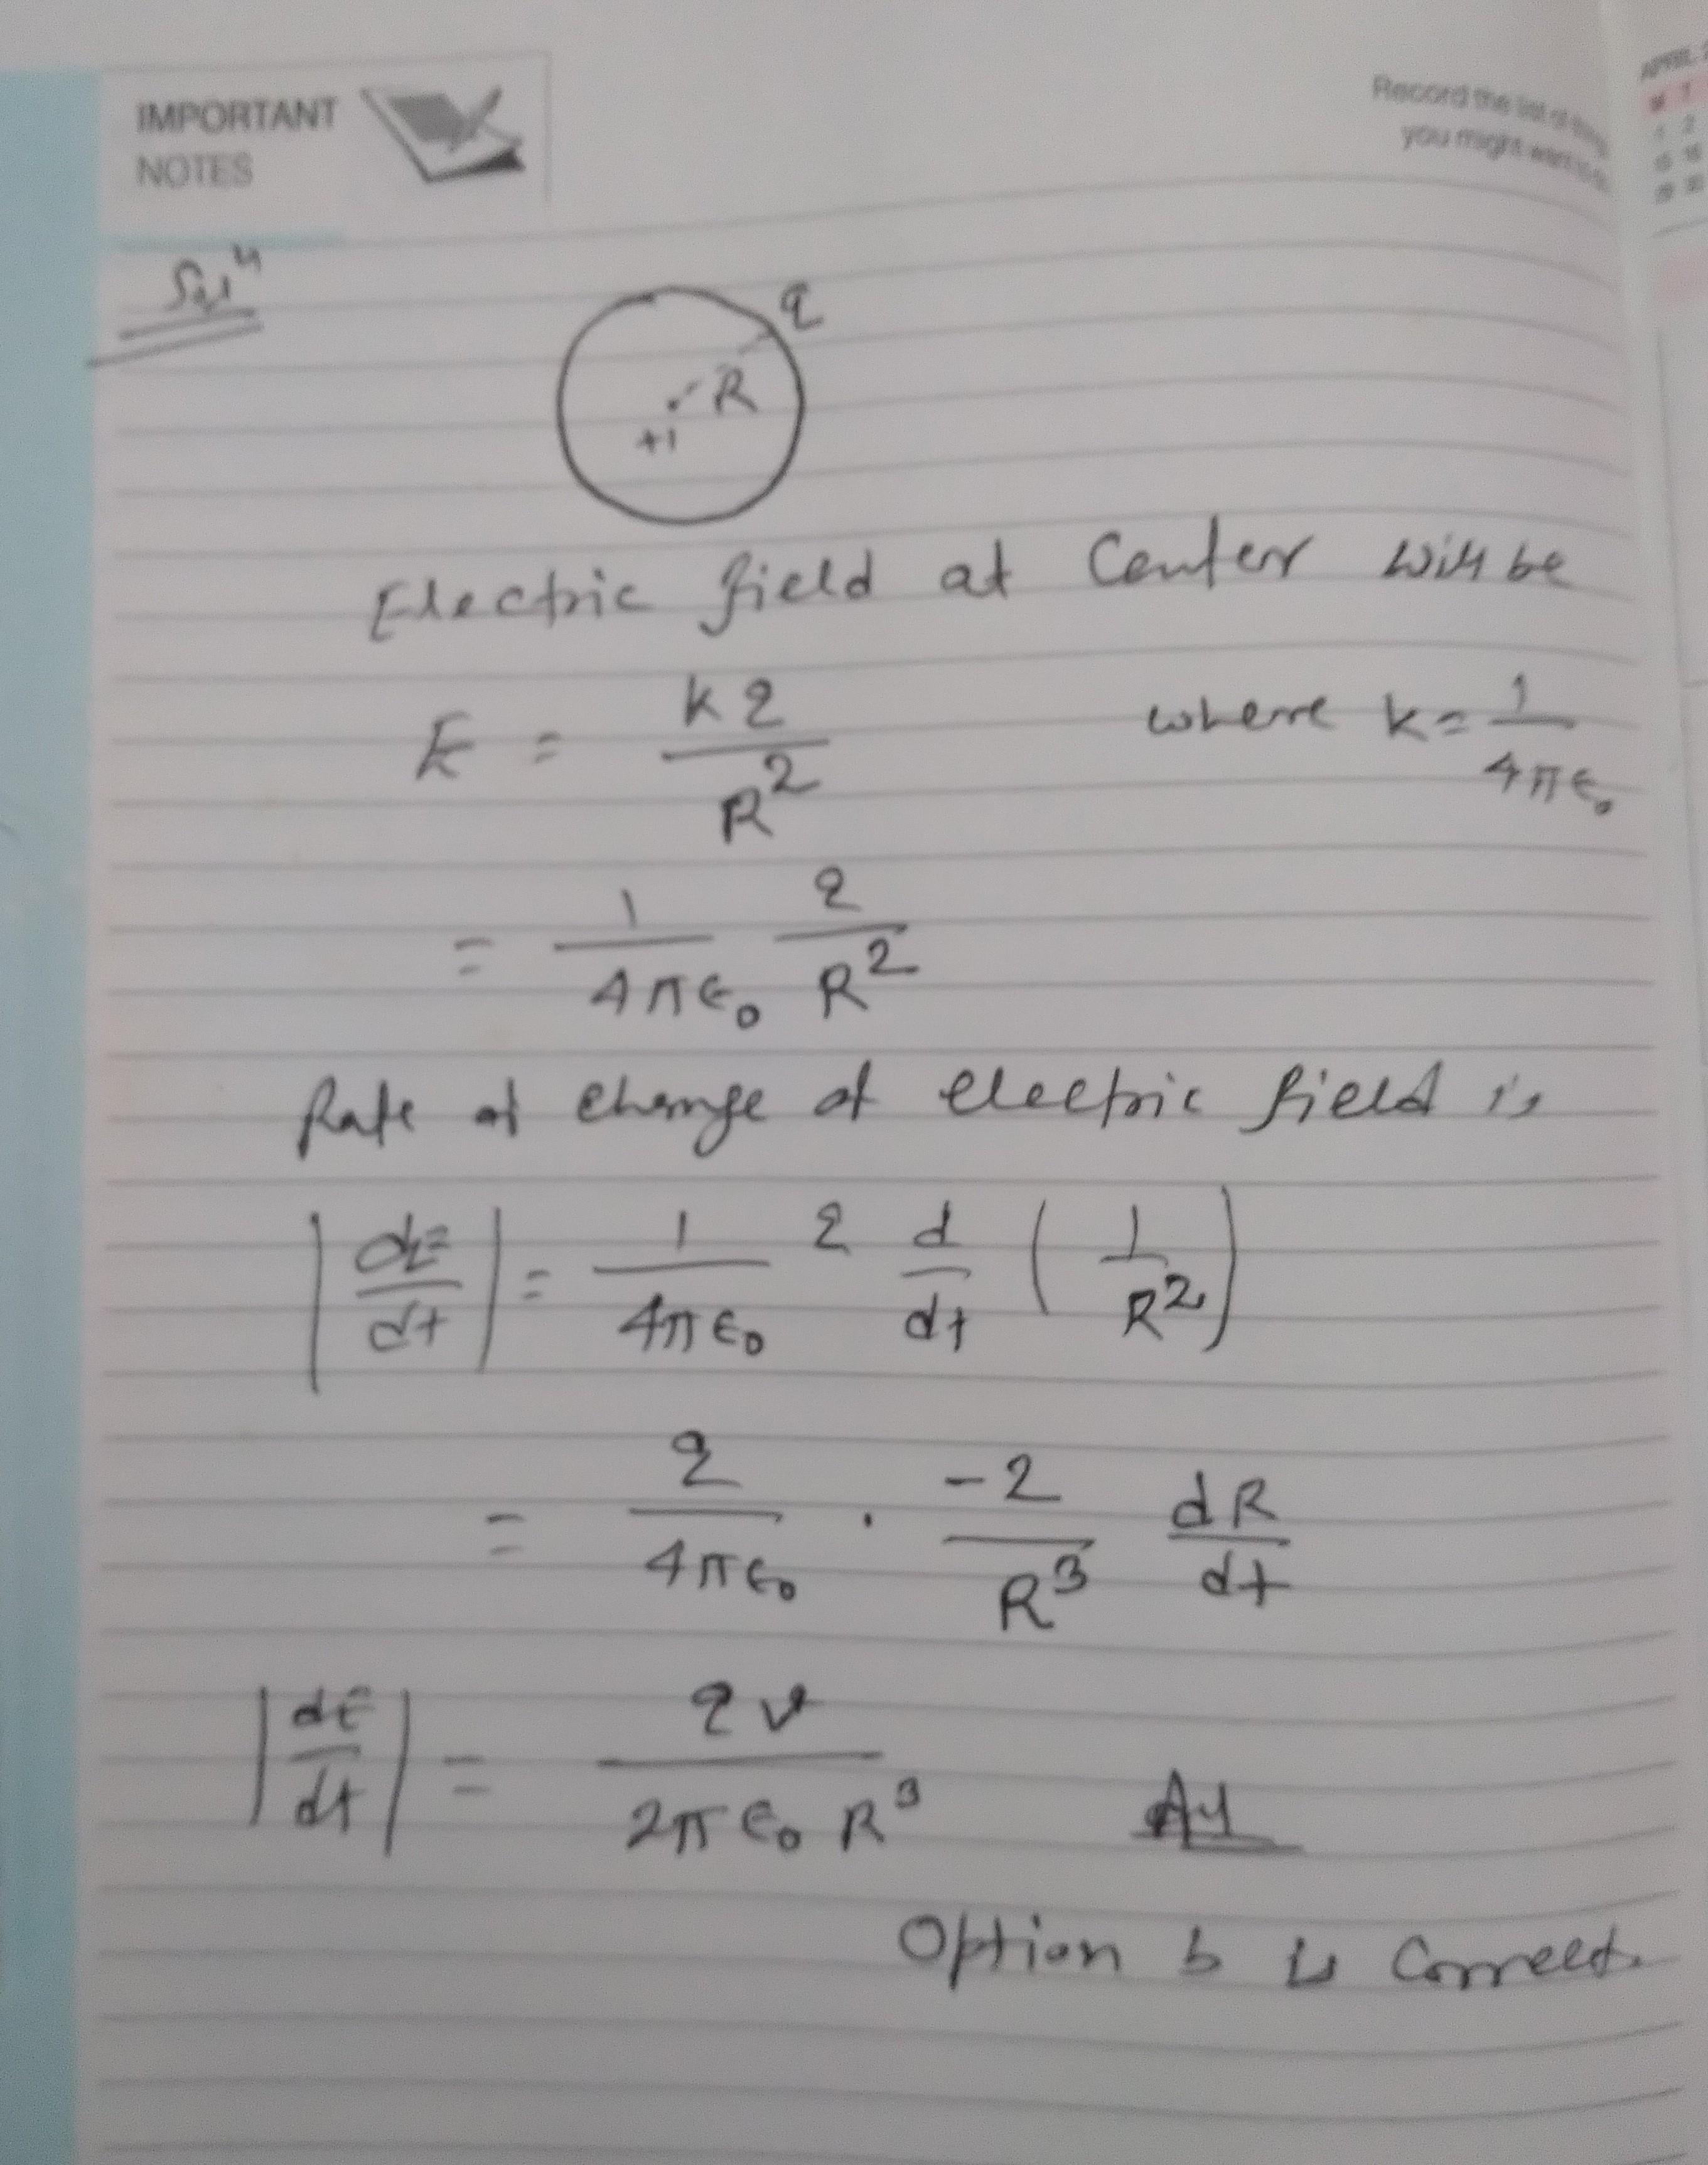 IMPORTANT
NOTES
Record the list of
you might want to
APRIL
Solⁿ
q
R
+1
Electric field at Center will be
E = kq / R² where k = 1 / 4πϵ₀
= 1 / 4πϵ₀ q / R²
Rate of change of electric field is
|dE/dt| = 1 / 4πϵ₀ q d/dt (1 / R²)
= q / 4πϵ₀ · -2 / R³ dR/dt
|dE/dt| = qv / 2πϵ₀R³ Ay
Option b is Correct.